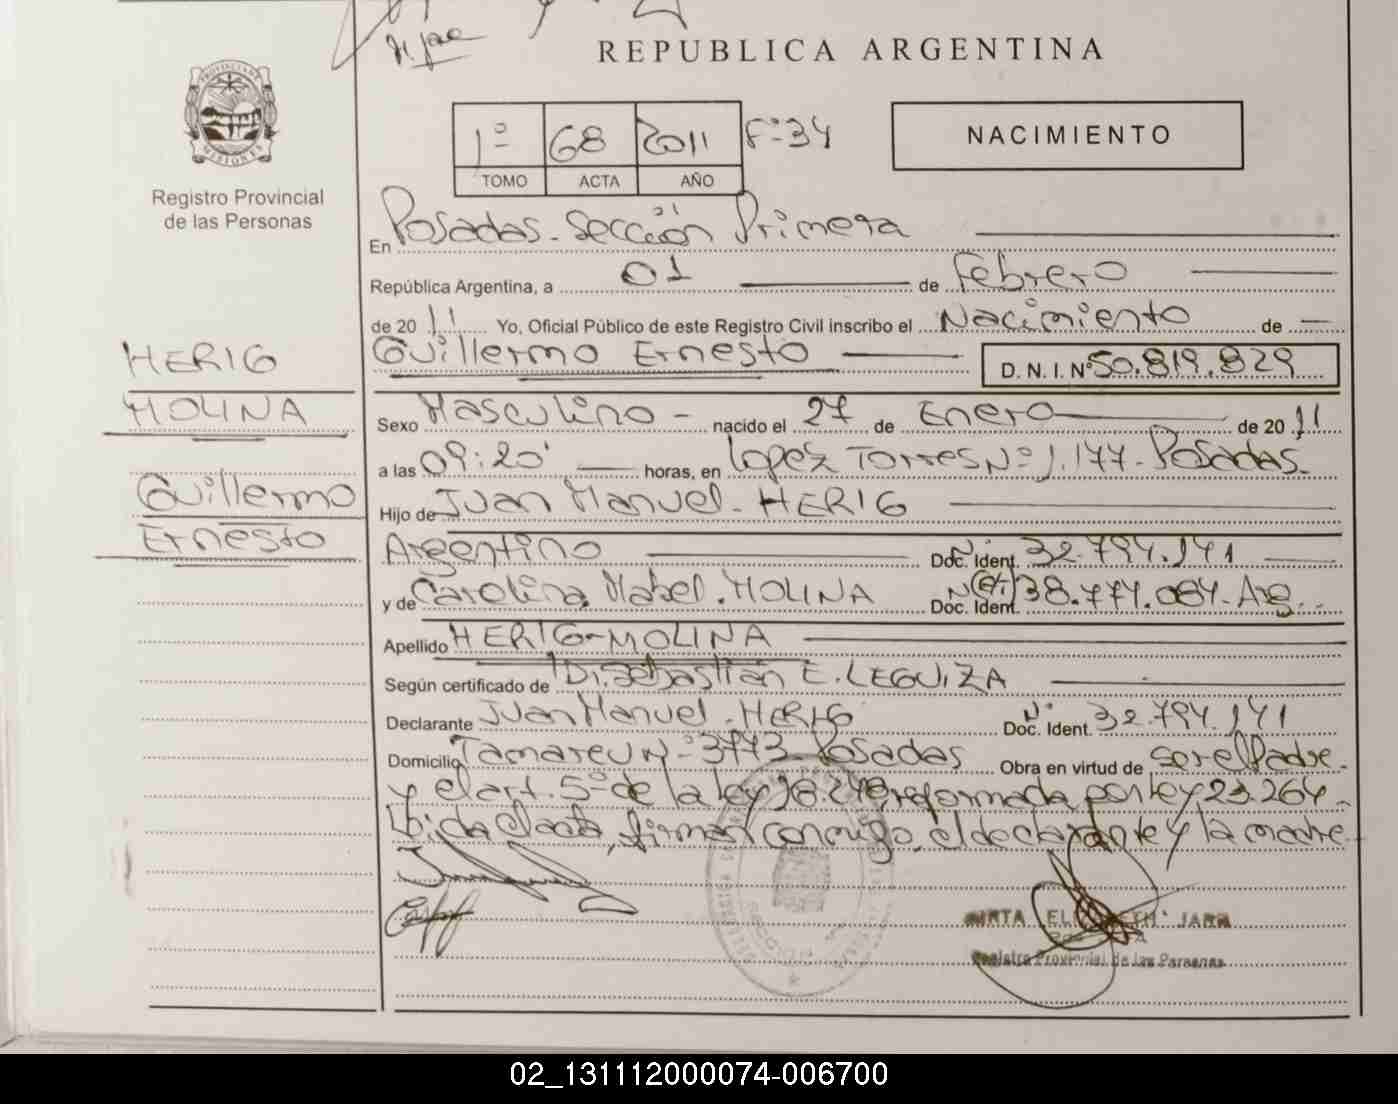 REPUBLICA ARGENTINA
PROVINCIA DE MISIONES
Registro Provincial
de las Personas
1º 68 2011 Fº 34
TOMO ACTA AÑO
NACIMIENTO
En Posadas - Sección Primera
República Argentina, a 01 de Febrero
de 2011 Yo, Oficial Público de este Registro Civil inscribo el Nacimiento de
Guillermo Ernesto D.N.I. Nº 50.819.829
HERIG
MOLINA
Guillermo
Ernesto
Sexo Masculino - nacido el 27 de Enero de 2011
a las 09:20' horas, en Lopez Torres Nº 1.177 - Posadas.
Hijo de Juan Manuel - HERIG
Argentino Doc. Ident. Nº 32.794.141
y de Carolina Mabel. MOLINA Doc. Ident. Nº 38.777.084. Arg.
Apellido HERIG-MOLINA
Según certificado de Dr. Sebastián E. LEGUIZA
Declarante Juan Manuel - HERIG Doc. Ident. Nº 32.794.141
Domicilio Tamareu Nº 3773 Posadas Obra en virtud de ser el Padre
y el art. 5º de la ley 18.248 reformada por ley 23.264.
Leída el acta, firman conmigo, el declarante y la madre
JARA
Registro Provincial de las Personas
02_131112000074-006700